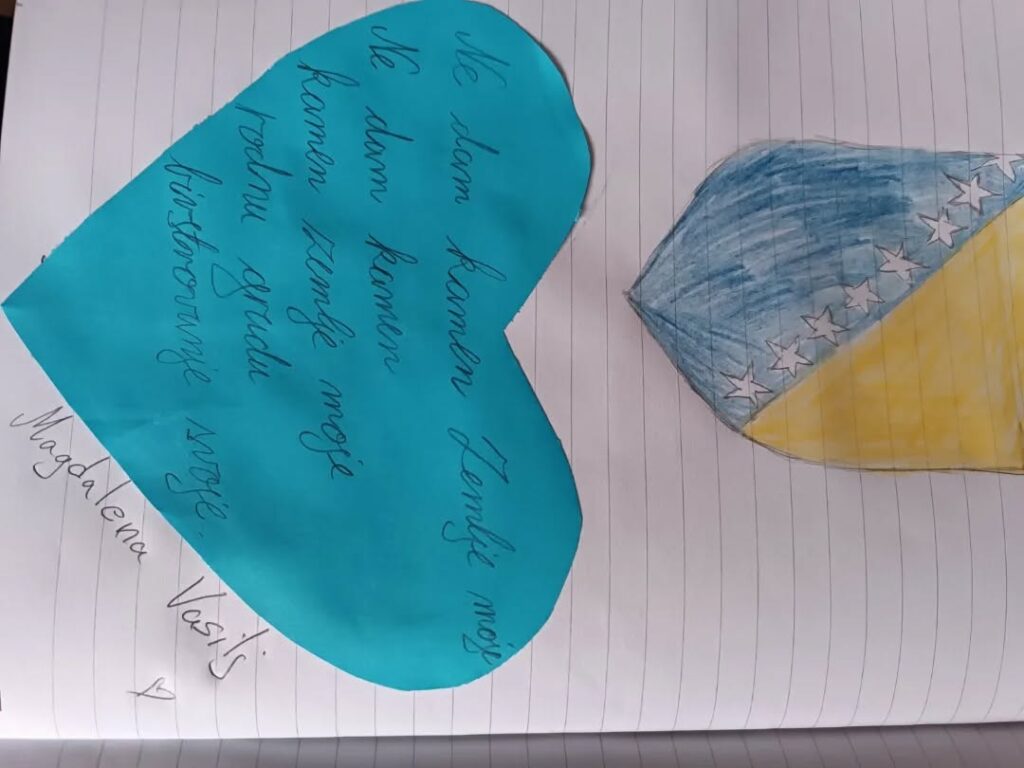 Ne dam kamen Zemlje moje
Ne dam kamen
kamen zemlje moje
rodnu grudu
bivstvovanje svoje.
Magdalena Vasilj